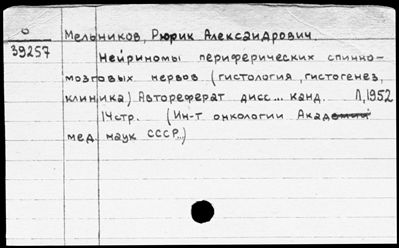 0
Мельников, Рюрик Александрович.
39257
Нейриномы периферических спинно-
мозговых нервов (гистология, гистогенез,
клиника) Автореферат дисс... канд. Л, 1952
14стр. (Ин-т онкологии Акад
мед. наук СССР...)